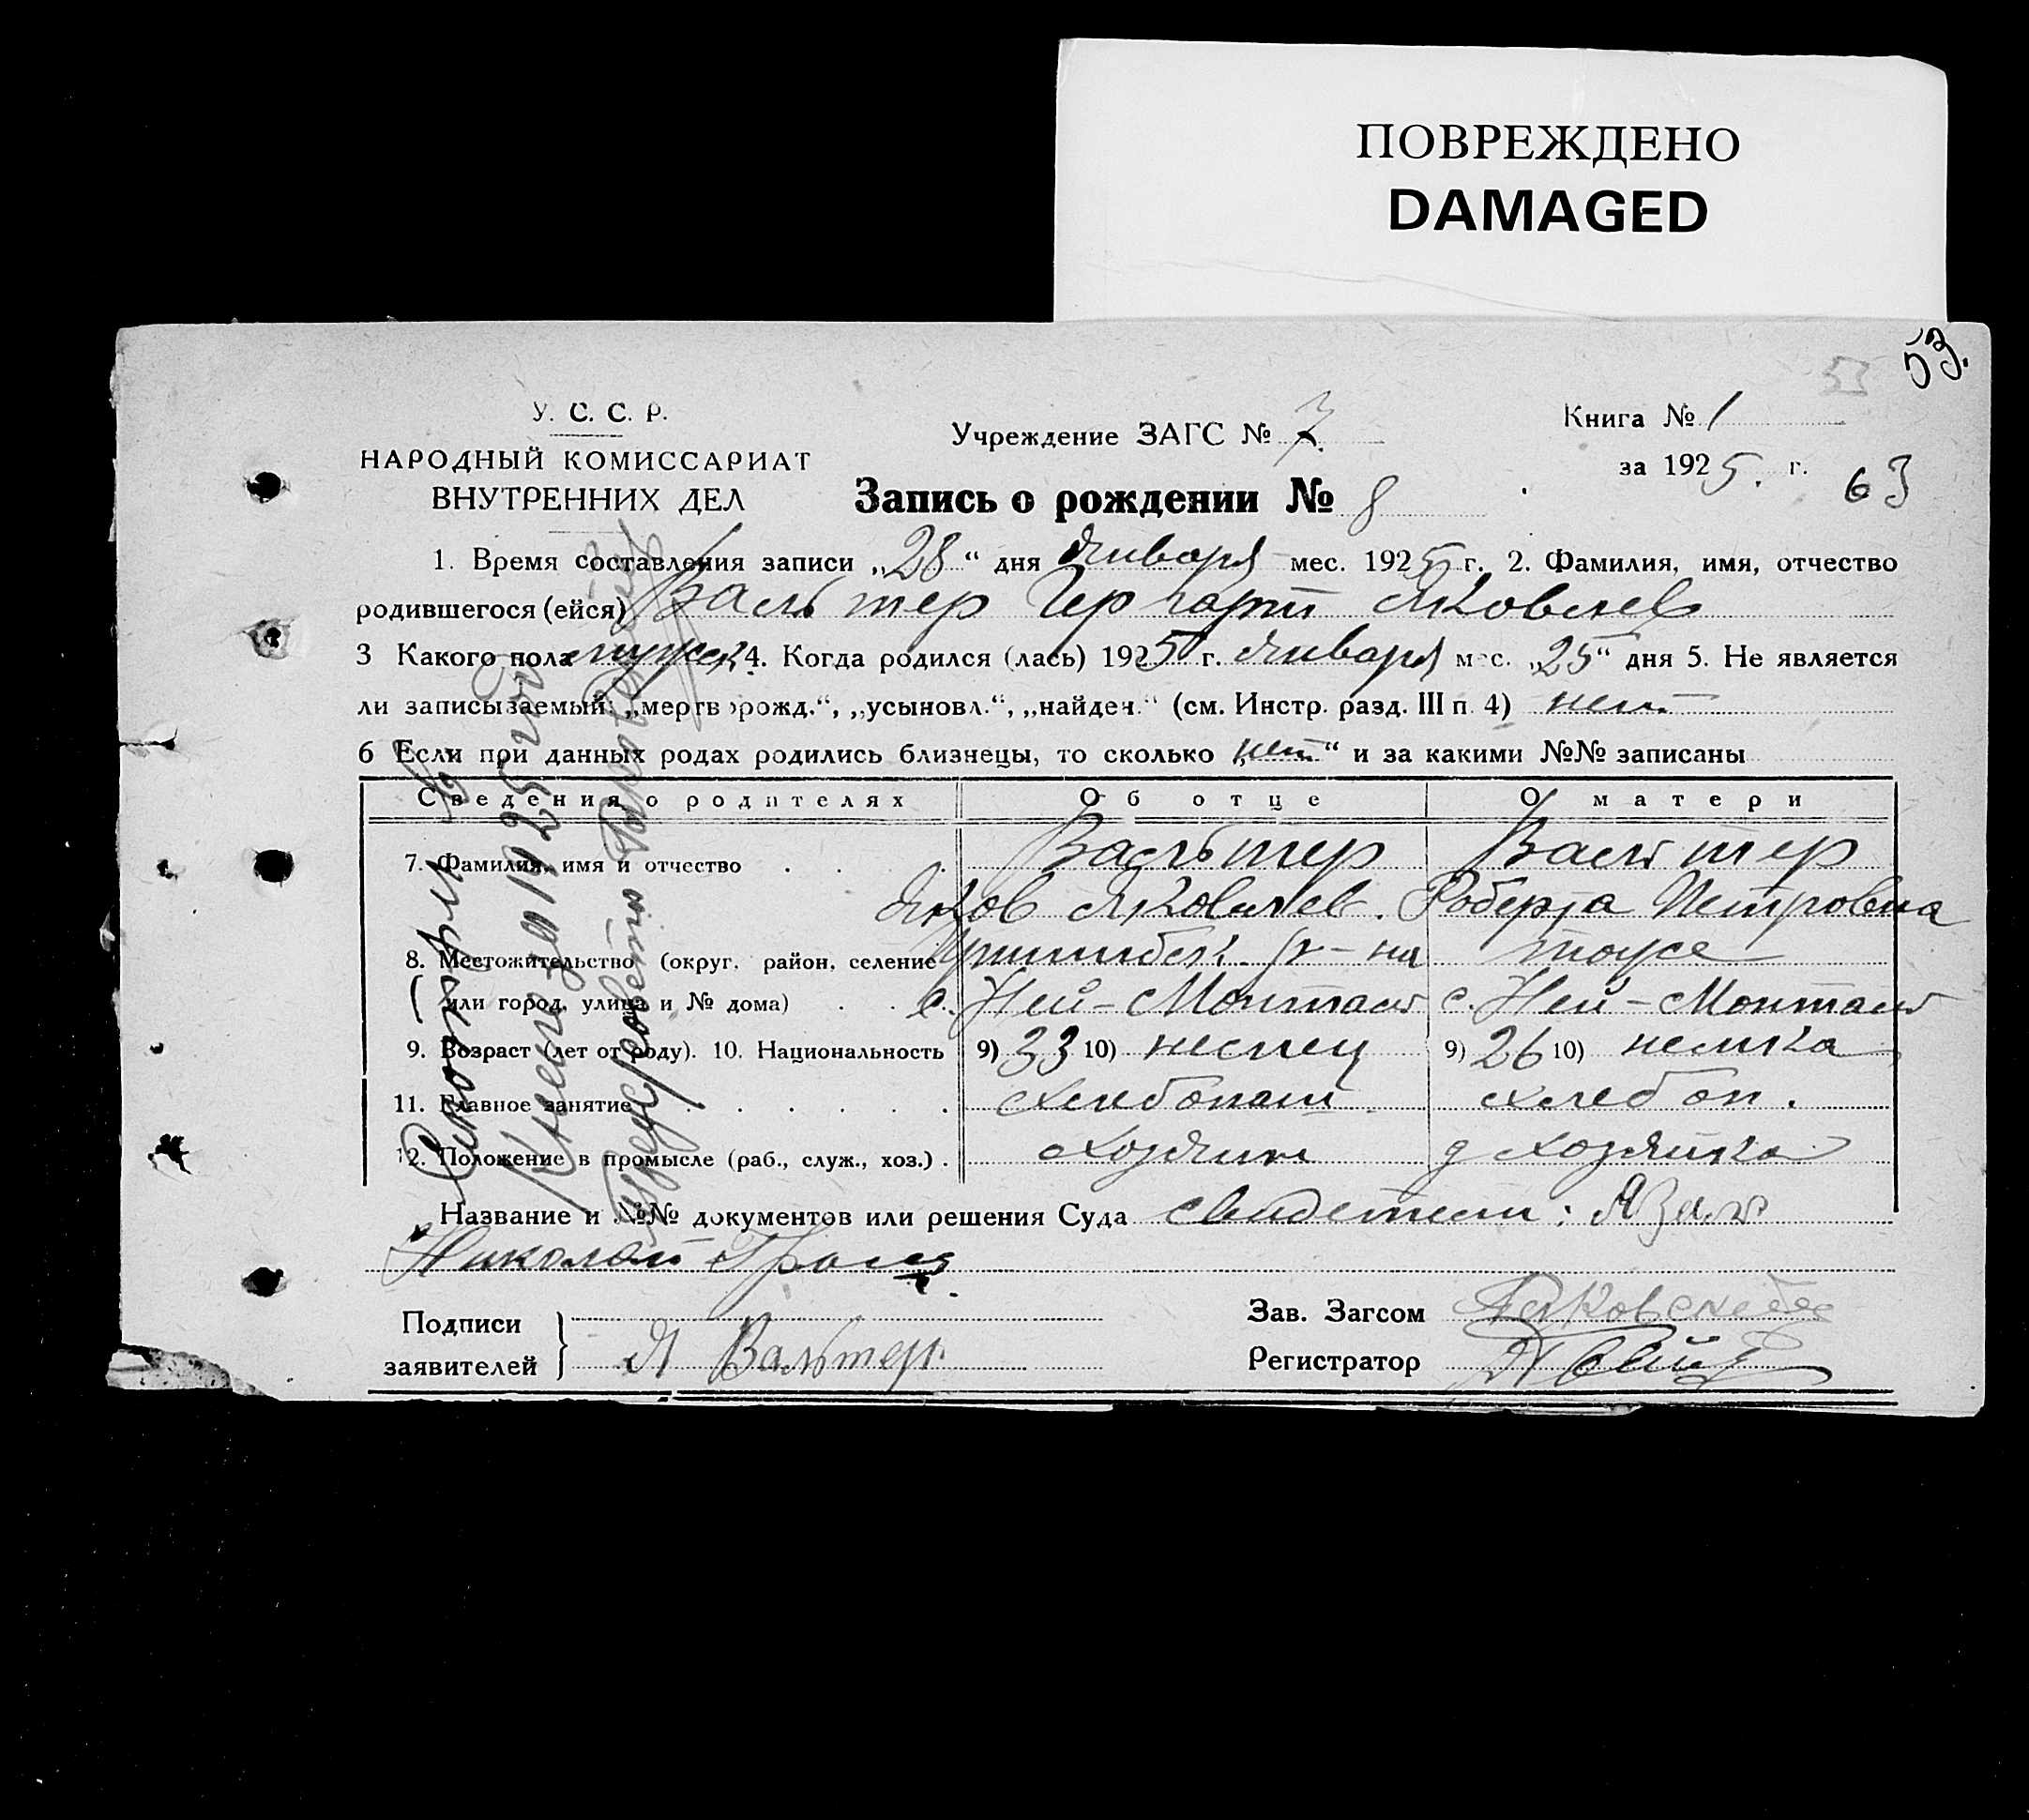 ПОВРЕЖДЕНО
DAMAGED
53.
53
У. С. С. Р.
НАРОДНЫЙ КОМИССАРИАТ
ВНУТРЕННИХ ДЕЛ
Учреждение ЗАГС № 7.
Книга № 1
за 1925. г.
63
Запись о рождении № 8
1. Время составления записи „28“ дня января мес. 1925 г. 2. Фамилия, имя, отчество
родившегося (ейся) Вальтер Герхарт Яковлев
3 Какого пола мужск. 4. Когда родился (лась) 1925 г. января мес. „25“ дня 5. Не является
ли записываемый: „мертворожд.“, „усыновл.“, „найден.“ (см. Инстр. разд. III п. 4) нет
6 Если при данных родах родились близнецы, то сколько „нет“ и за какими №№ записаны
Сведения о родителях Об отце О матери
7. Фамилия, имя и отчество Вальтер Вальтер
Яков Яковлев. Петровна
8. Местожительство (округ, район, селение Пришибск. р-на тоже
или город, улица и № дома) с. Ней-Монталь с. Ней-Монталь
9. Возраст (лет от роду). 10. Национальность 9) 33 10) немец 9) 26 10) немка
11. Главное занятие хлебопаш. хлебоп.
12. Положение в промысле (раб., служ., хоз.) хозяин д хозяйка
Название и №№ документов или решения Суда свидетели:
Николай
Подписи
заявителей } Я Вальтер.
Зав. Загсом
Регистратор
Книга за 1925 год